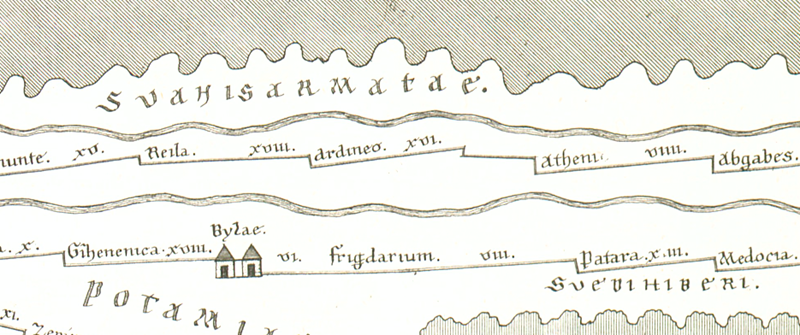 SVAHISARMATAE.
nunte. xv. Reila. xviii. ardineo. xvi. atheni. viiii. abgabes.
Bylae.
a. x. Gihenenica. xviii. vi. frigdarium. viii. Patara. x.iii. Medocia.
SVEDIHIBERI.
POTAMI
xi.